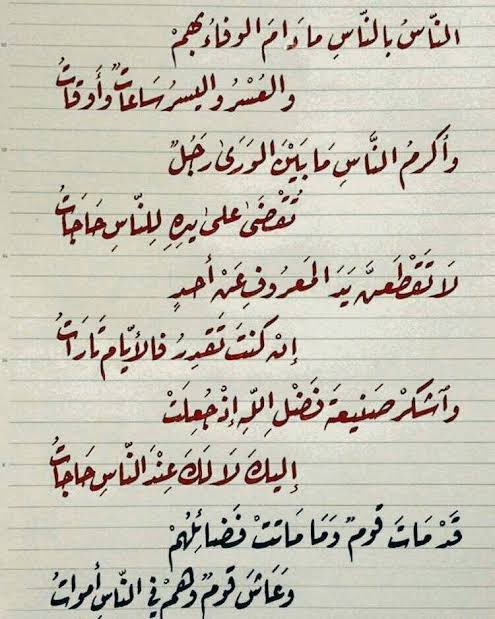 النّاسُ بالنّاسِ مادَامَ الوفاءُ بهمْ
والعُسْرُ واليسرُ سَاعاتٌ وأَوقاتُ
وأكرمُ النَّاسِ مَا بَيْنَ الوَرَىٰ رَجُلٌ
تُقْضَىٰ علىٰ يدِهِ لِلنّاسِ حَاجَاتُ
لَا تَقْطَعنَّ يَدَ المَعروفِ عَنْ أحدٍ
إنْ كنتَ تَقدِرُ فالأيّام تَارَاتُ
وٱشكرْ صَنيعةَ فَضْلِ اللهِ إذْ جُعِلَتْ
إليكَ لَا لَكَ عِنْدَ النّاسِ حَاجَاتُ
قَدْ مَاتَ قومٌ وَمَا مَاتتْ فَضَائِلُهُمْ
وَعَاشَ قومٌ وهُمْ في النّاسِ أمواتُ